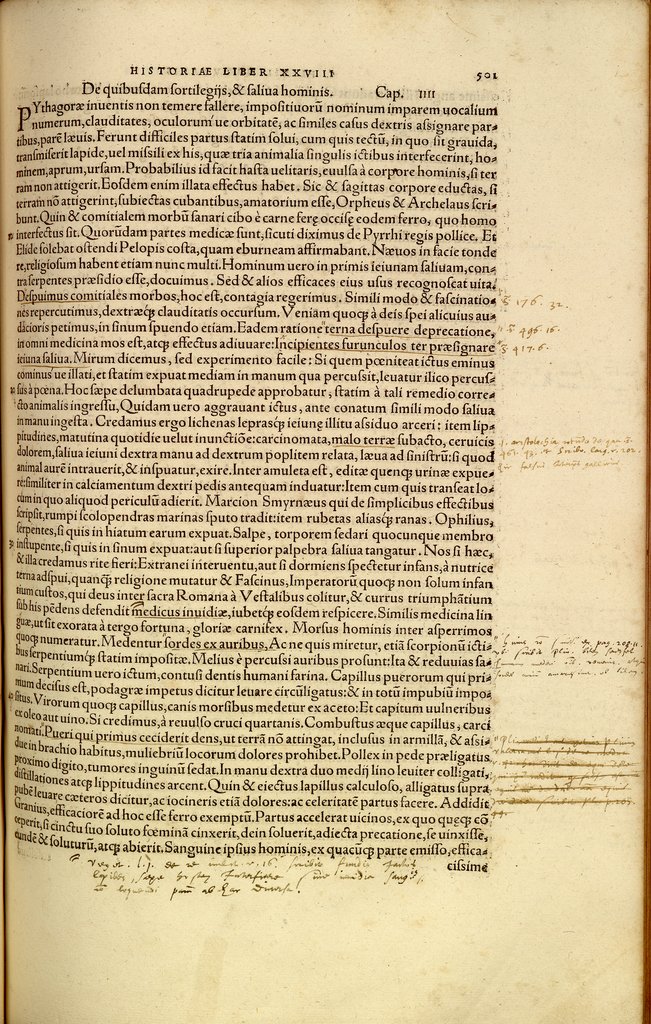 HISTORIAE LIBER XXVIII 501
De quibusdam sortilegijs, & saliua hominis. Cap. IIII
PYthagoræ inuentis non temere fallere, impositiuorũ nominum imparem uocalium
numerum, clauditates, oculorum ue orbitatẽ, ac similes casus dextris assignare par-
tibus, parẽ læuis. Ferunt difficiles partus statim solui, cum quis tectũ, in quo sit grauida,
transmiserit lapide, uel missili ex his, quæ tria animalia singulis ictibus interfecerint, ho-
minem, aprum, ursam. Probabilius id facit hasta uelitaris, euulsa à corpore hominis, si ter
ram non attigerit. Eosdem enim illata effectus habet. Sic & sagittas corpore eductas, si
terram nõ attigerint, subiectas cubantibus, amatorium esse, Orpheus & Archelaus scri-
bunt. Quin & comitialem morbũ sanari cibo è carne ferę occisę eodem ferro, quo homo
interfectus sit. Quorũdam partes medicæ sunt, sicuti diximus de Pyrrhi regis pollice. Et
Elide solebat ostendi Pelopis costa, quam eburneam affirmabant. Næuos in facie tonde
re, religiosum habent etiam nunc multi. Hominum uero in primis ieiunam saliuam, con-
tra serpentes præsidio esse, docuimus. Sed & alios efficaces eius usus recognoscat uita.
Despuimus comitiales morbos, hoc est, contagia regerimus. Simili modo & fascinatio-
nes repercutimus, dextræq́ clauditatis occursum. Veniam quoq̀ à deis spei alicuius au-
dacioris petimus, in sinum spuendo etiam. Eadem ratione terna despuere deprecatione,
in omni medicina mos est, atq̀ effectus adiuuare: Incipientes furunculos ter præsignare
ieiuna saliua. Mirum dicemus, sed experimento facile: Si quem pœniteat ictus eminus
cominus ue illati, et statim expuat mediam in manum qua percussit, leuatur ilico percus-
sus à pœna. Hoc sæpe delumbata quadrupede approbatur, statim à tali remedio corre-
cto animalis ingressu. Quidam uero aggrauant ictus, ante conatum simili modo saliua
in manu ingesta. Credamus ergo lichenas leprasq́ ieiunę illitu assiduo arceri: item lip-
pitudines, matutina quotidie uelut inunctiõe: carcinomata, malo terræ subacto, ceruicis
dolorem, saliua ieiuni dextra manu ad dextrum poplitem relata, læua ad sinistrũ: si quod
animal aurem intrauerit, & inspuatur, exire. Inter amuleta est, editæ quenq̀ urinæ expue-
re: similiter in calciamentum dextri pedis antequam induatur: Item cum quis transeat lo-
cum in quo aliquod periculũ adierit. Marcion Smyrnæus qui de simplicibus effectibus
scripsit, rumpi scolopendras marinas sputo tradit: item rubetas aliasq́ ranas. Ophilius,
serpentes, si quis in hiatum earum expuat. Salpe, torporem sedari quocunque membro
instupente, si quis in sinum expuat: aut si superior palpebra saliua tangatur. Nos si hæc,
& illa credamus rite fieri: Extranei interuentu, aut si dormiens spectetur infans, à nutrice
terna adspui, quanq̀ religione mutatur & Fascinus, Imperatorũ quoq̀ non solum infan
tium custos, qui deus inter sacra Romana à Vestalibus colitur, & currus triumphãtium
sub his pẽdens defendit medicus inuidiæ, iubetq́ eosdem respicere. Similis medicina lin
guæ, ut sit exorata à tergo fortuna, gloriæ carnifex. Morsus hominis inter asperrimos
quoq̀ numeratur. Medentur sordes ex auribus, Ac ne quis miretur, etiã scorpionũ icti-
bus serpentiumq́ statim impositæ. Melius è percussi auribus prosunt: Ita & reduuias sa-
nari. Serpentium uero ictum, contusi dentis humani farina. Capillus puerorum qui pri-
mum decisus est, podagræ impetus dicitur leuare circũligatus: & in totũ impubiũ impo-
situs. Virorum quoq̀ capillus, canis morsibus medetur ex aceto: Et capitum uulneribus
ex oleo aut uino. Si credimus, à reuulso cruci quartanis. Combustus æque capillus, carci
nomati. Pueri qui primus ceciderit dens, ut terrã nõ attingat, inclusus in armillã, & assi-
due in brachio habitus, muliebriũ locorum dolores prohibet. Pollex in pede præligatus
proximo digito, tumores inguinũ sedat. In manu dextra duo medij lino leuiter colligati,
distillationes atq̀ lippitudines arcent. Quin & eiectus lapillus calculoso, alligatus supra
pubẽ leuare cæteros dicitur, ac iocineris etiã dolores: ac celeritatẽ partus facere. Addidit
Granius, efficaciorẽ ad hoc esse ferro exemptũ. Partus accelerat uicinos, ex quo quęq̀ cõ
ceperit, si cinctu suo soluto fœminã cinxerit, dein soluerit, adiecta precatione, se uinxisse,
eundẽ & soluturũ, atq̀ abierit. Sanguine ipsius hominis, ex quacũq̀ parte emisso, effica-
cissime